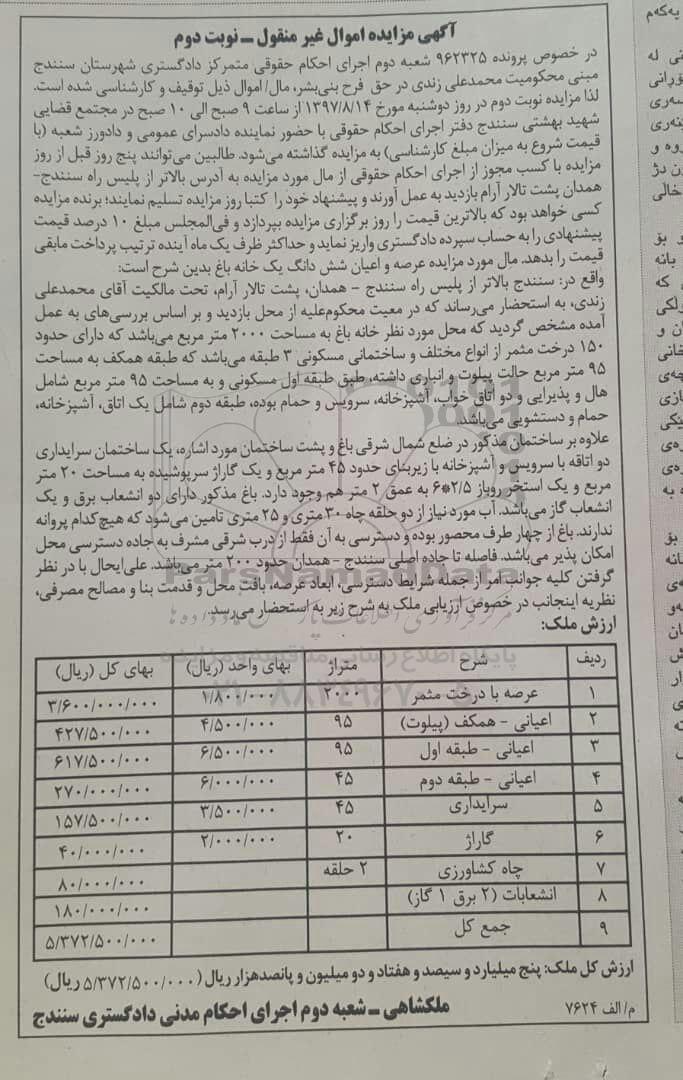 آگهی مزایده اموال غیر منقول ــ نوبت دوم
در خصوص پرونده ۹۶۲۳۲۵ شعبه دوم اجرای احکام حقوقی متمرکز دادگستری شهرستان سنندج
مبنی محکومیت محمدعلی زندی در حق فرح بنی‌بشر، مال/اموال ذیل توقیف و کارشناسی شده است.
لذا مزایده نوبت دوم در روز دوشنبه مورخ ۱۳۹۷/۸/۱۴ از ساعت ۹ صبح الی ۱۰ صبح در مجتمع قضایی
شهید بهشتی سنندج دفتر اجرای احکام حقوقی با حضور نماینده دادسرای عمومی و دادورز شعبه (با
قیمت شروع به میزان مبلغ کارشناسی) به مزایده گذاشته می‌شود. طالبین می‌توانند پنج روز قبل از روز
مزایده با کسب مجوز از اجرای احکام حقوقی از مال مورد مزایده به آدرس بالاتر از پلیس راه سنندج-
همدان پشت تالار آرام بازدید به عمل آورند و پیشنهاد خود را کتبا روز مزایده تسلیم نمایند؛ برنده مزایده
کسی خواهد بود که بالاترین قیمت را روز برگزاری مزایده بپردازد و فی‌المجلس مبلغ ۱۰ درصد قیمت
پیشنهادی را به حساب سپرده دادگستری واریز نماید و حداکثر ظرف یک ماه آینده ترتیب پرداخت مابقی
قیمت را بدهد. مال مورد مزایده عرصه و اعیان شش دانگ یک خانه باغ بدین شرح است:
واقع در: سنندج بالاتر از پلیس راه سنندج - همدان، پشت تالار آرام، تحت مالکیت آقای محمدعلی
زندی، به استحضار می‌رساند که در معیت محکوم‌علیه از محل بازدید و بر اساس بررسی‌های به عمل
آمده مشخص گردید که محل مورد نظر خانه باغ به مساحت ۲۰۰۰ متر مربع می‌باشد که دارای حدود
۱۵۰ درخت مثمر از انواع مختلف و ساختمانی مسکونی ۳ طبقه می‌باشد که طبقه همکف به مساحت
۹۵ متر مربع حالت پیلوت و انباری داشته، طبق طبقه اول مسکونی و به مساحت ۹۵ متر مربع شامل
هال و پذیرایی و دو اتاق خواب، آشپزخانه، سرویس و حمام بوده، طبقه دوم شامل یک اتاق، آشپزخانه،
حمام و دستشویی می‌باشد.
علاوه بر ساختمان مذکور در ضلع شمال شرقی باغ و پشت ساختمان مورد اشاره، یک ساختمان سرایداری
دو اتاقه با سرویس و آشپزخانه با زیربنای حدود ۴۵ متر مربع و یک گاراژ سرپوشیده به مساحت ۲۰ متر
مربع و یک استخر روباز ۲/۵*۶ به عمق ۲ متر هم وجود دارد. باغ مذکور دارای دو انشعاب برق و یک
انشعاب گاز می‌باشد. آب مورد نیاز از دو حلقه چاه ۳۰ متری و ۲۵ متری تامین می‌شود که هیچ‌کدام پروانه
ندارند. باغ از چهار طرف محصور بوده و دسترسی به آن فقط از درب شرقی مشرف به جاده دسترسی محل
امکان پذیر می‌باشد. فاصله تا جاده اصلی سنندج - همدان حدود ۲۰۰ متر می‌باشد. علی‌ایحال با در نظر
گرفتن کلیه جوانب امر از جمله شرایط دسترسی، ابعاد عرصه، بافت محل و قدمت بنا و مصالح مصرفی،
نظریه اینجانب در خصوص ارزیابی ملک به شرح زیر به استحضار می‌رسد.
ارزش ملک:
ردیف شرح متراژ بهای واحد (ریال) بهای کل (ریال)
۱ عرصه با درخت مثمر ۲۰۰۰ ۱/۸۰۰/۰۰۰ ۳/۶۰۰/۰۰۰/۰۰۰
۲ اعیانی - همکف (پیلوت) ۹۵ ۴/۵۰۰/۰۰۰ ۴۲۷/۵۰۰/۰۰۰
۳ اعیانی - طبقه اول ۹۵ ۶/۵۰۰/۰۰۰ ۶۱۷/۵۰۰/۰۰۰
۴ اعیانی - طبقه دوم ۴۵ ۶/۰۰۰/۰۰۰ ۲۷۰/۰۰۰/۰۰۰
۵ سرایداری ۴۵ ۳/۵۰۰/۰۰۰ ۱۵۷/۵۰۰/۰۰۰
۶ گاراژ ۲۰ ۲/۰۰۰/۰۰۰ ۴۰/۰۰۰/۰۰۰
۷ چاه کشاورزی ۲ حلقه ۸۰/۰۰۰/۰۰۰
۸ انشعابات (۲ برق ۱ گاز) ۱۸۰/۰۰۰/۰۰۰
۹ جمع کل ۵/۳۷۲/۵۰۰/۰۰۰
ارزش کل ملک: پنج میلیارد و سیصد و هفتاد و دو میلیون و پانصدهزار ریال (۵/۳۷۲/۵۰۰/۰۰۰ ریال)
م/الف ۷۶۲۴ ملکشاهی ــ شعبه دوم اجرای احکام مدنی دادگستری سنندج
ParsNamadData
پایگاه اطلاع رسانی مناقصه و مزایده